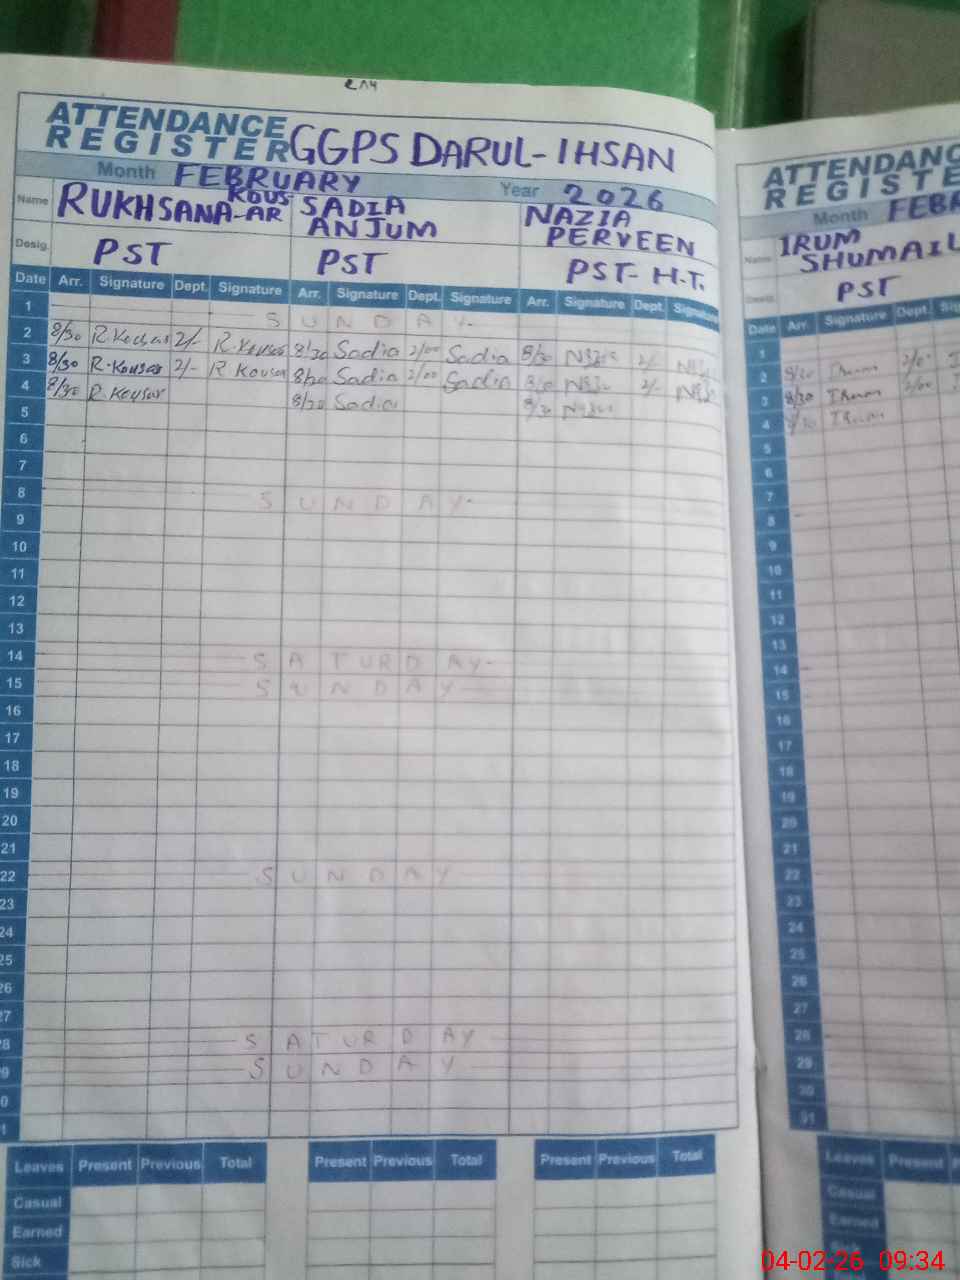 ATTENDANCE
REGISTER GGPS DARUL-IHSAN
Month FEBRUARY Year 2026
Name RUKHSANA KOUS-AR SADIA ANJUM NAZIA PERVEEN
Desig. PST PST PST-H.T.
Date Arr. Signature Dept. Signature Arr. Signature Dept. Signature Arr. Signature Dept. Signature
1 SUNDAY
2 8/30 R.Kousar 2/- R.Kousar 8/30 Sadia 2/00 Sadia 8/30 2/-
3 8/30 R.Kousar 2/- R Kousar 8/30 Sadia 2/00 Sadia 8/30 2/-
4 8/30 R Kousar 8/30 Sadia 8/30
5
6
7
8 SUNDAY
9
10
11
12
13
14 SATURDAY
15 SUNDAY
16
17
18
19
20
21
22 SUNDAY
23
24
25
26
27
28 SATURDAY
29 SUNDAY
30
31
Leaves Present Previous Total Present Previous Total Present Previous Total
Casual
Earned
Sick
ATTENDANC
REGISTE
Month FEBR
Name IRUM
SHUMAIL
Desig. PST
Date Arr. Signature Dept. Sig
1
2 8/30 2/0
3 8/30 Irum 2/00
4 8/30 Irum
5
6
7
8
9
10
11
12
13
14
15
16
17
18
19
20
21
22
23
24
25
26
27
28
29
30
31
Leaves Present P
Casual
Earned
Sick
04-02-26 09:34